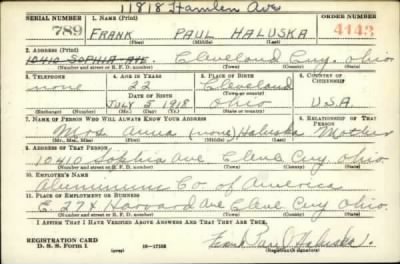 11818 Hamlen Ave
SERIAL NUMBER 1. NAME (Print) ORDER NUMBER
789 FRANK PAUL HALUSKA 4143
(First) (Middle) (Last)
2. ADDRESS (Print)
10410 SOPHIA AVE. Cleveland Cuy. Ohio
(Number and street or R. F. D. number) (Town) (County) (State)
3. TELEPHONE 4. AGE IN YEARS 5. PLACE OF BIRTH 6. COUNTRY OF CITIZENSHIP
none 22 Cleveland
DATE OF BIRTH (Town or county)
JULY 5 1918 Ohio U.S.A.
(Exchange) (Number) (Mo.) (Day) (Yr.) (State or country)
7. NAME OF PERSON WHO WILL ALWAYS KNOW YOUR ADDRESS 8. RELATIONSHIP OF THAT PERSON
Mrs Anna (none) Haluska Mother
(Mr., Mrs., Miss) (First) (Middle) (Last)
9. ADDRESS OF THAT PERSON
10410 Sophia Ave Cleve Cuy. Ohio
(Number and street or R. F. D. number) (Town) (County) (State)
10. EMPLOYER'S NAME
Aluminum Co of America
11. PLACE OF EMPLOYMENT OR BUSINESS
E. 27 & Harvard Ave Cleve Cuy Ohio.
(Number and street or R. F. D. number) (Town) (County) (State)
I AFFIRM THAT I HAVE VERIFIED ABOVE ANSWERS AND THAT THEY ARE TRUE.
REGISTRATION CARD
D. S. S. Form 1 (over) 16—17105 Frank Paul Haluska
(Registrant's signature)